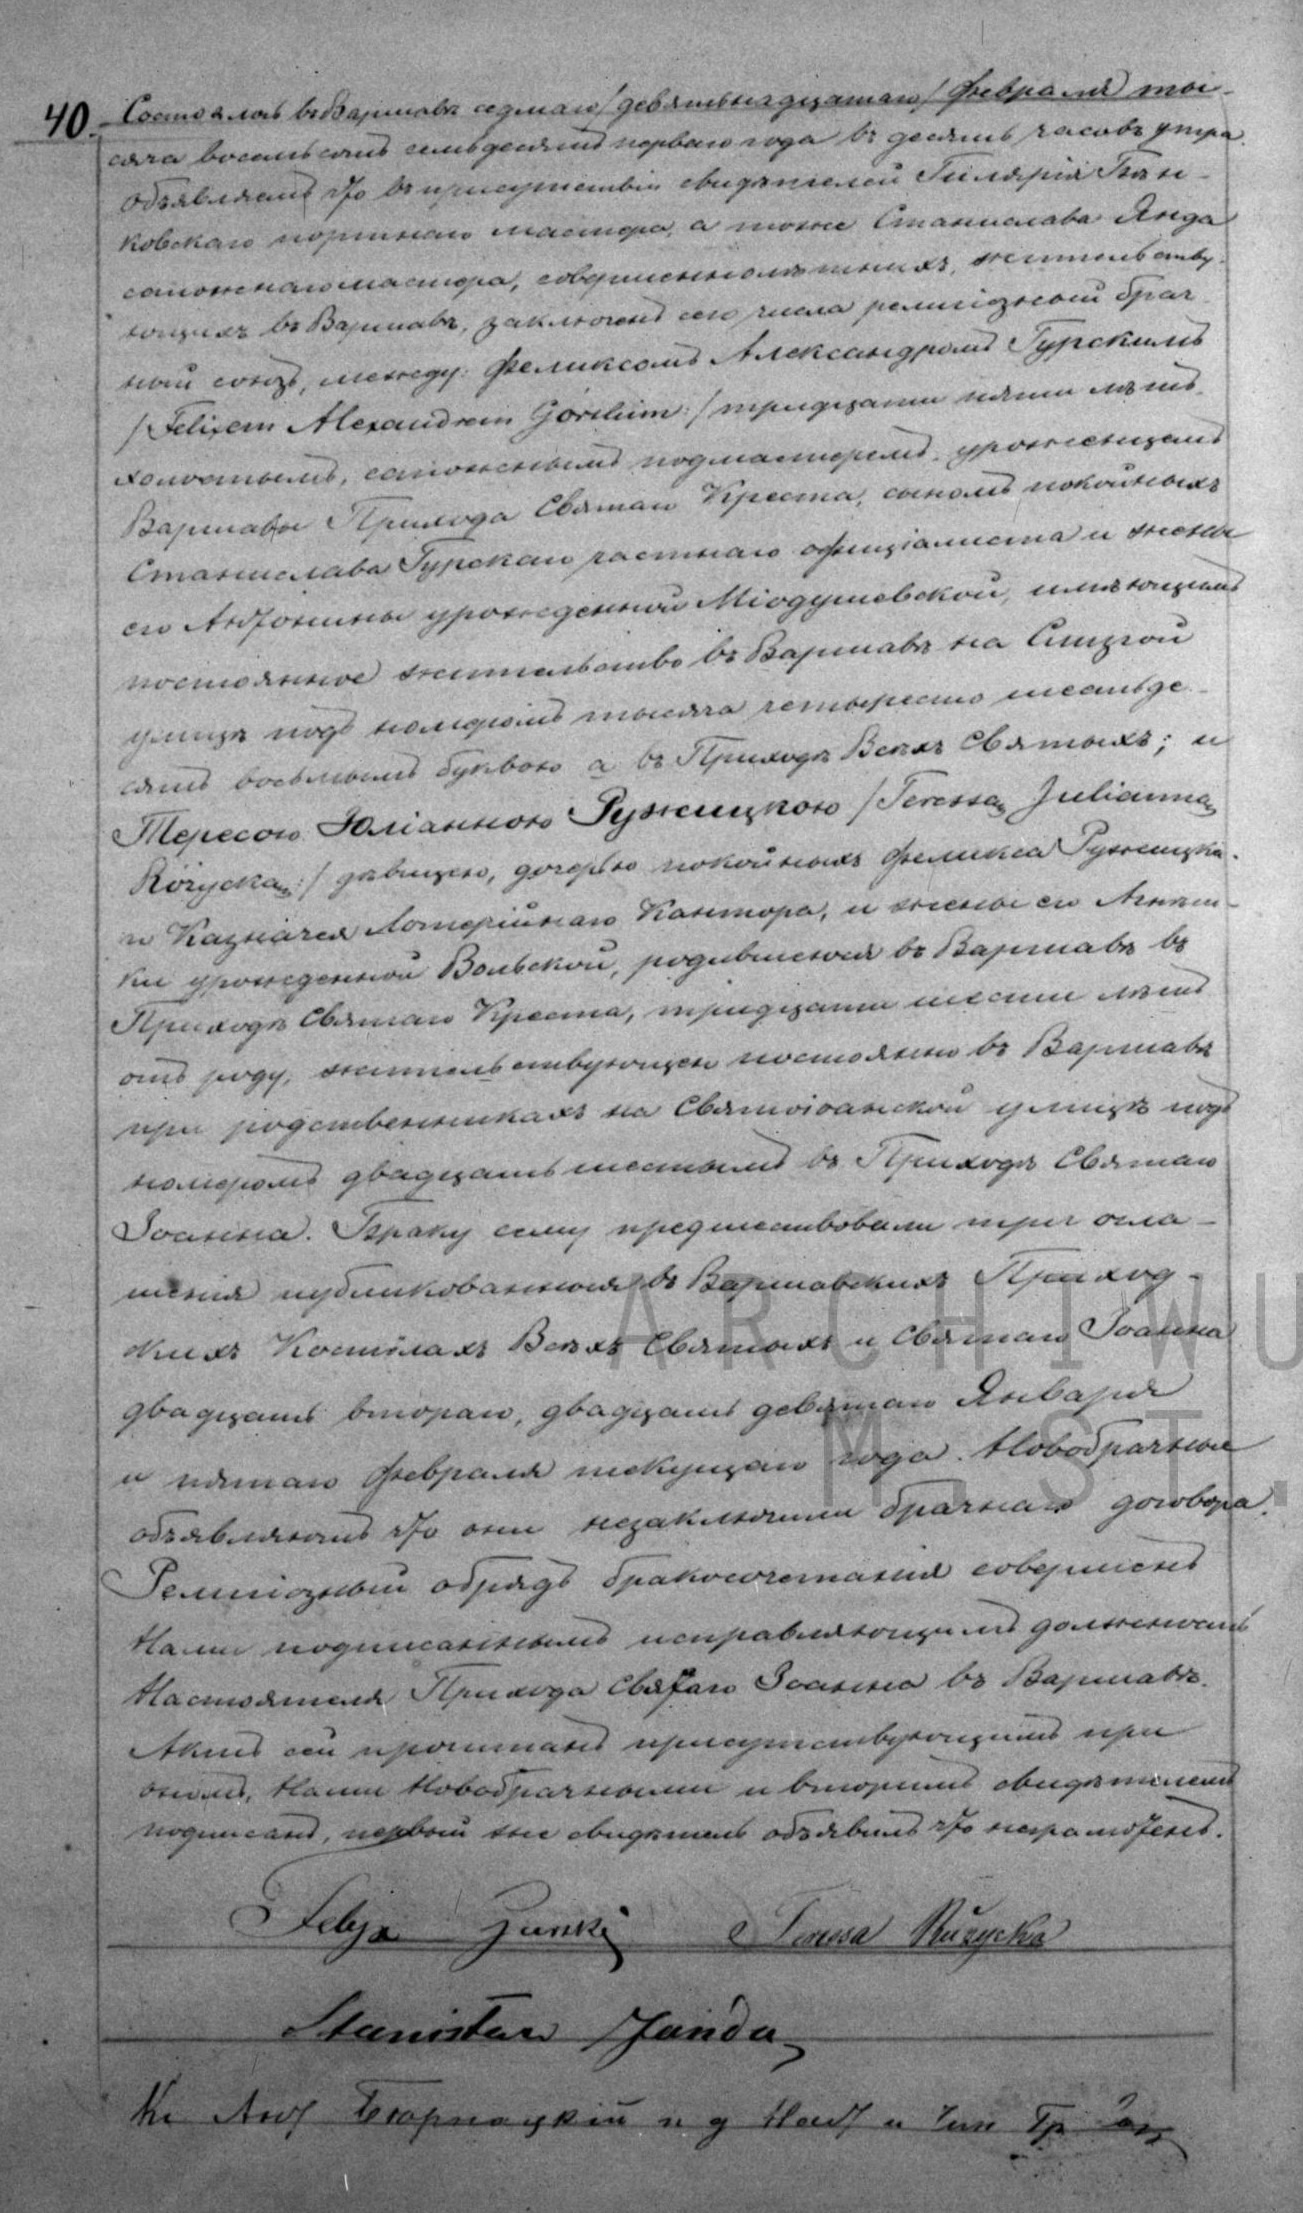 40. Состоялось въ Варшавѣ седмаго /девятнадцатаго/ Февраля ты-
сяча восемьсотъ семьдесятъ перваго года въ десять часовъ утра.
Объявляемъ что въ присутствіи свидѣтелей Гилярія Бан-
ковскаго портнаго мастера, а тоже Станислава Янда
сапожнаго мастера, совершеннолѣтныхъ, жительству-
ющихъ въ Варшавѣ, заключенъ сего числа религіозный брач-
ный союзъ, между: Феликсомъ Александромъ Гурскимъ
/Felixem Alexandrem Górskim:/ тридцати пяти лѣтъ,
холостымъ, сапожнымъ подмастеремъ, уроженцемъ
Варшавы Прихода Святаго Креста, сыномъ покойныхъ
Станислава Гурскаго частнаго официалиста и жены
его Антонины урожденной Міодушевской, имѣющимъ
постоянное жительство въ Варшавѣ на Слизкой
улицѣ подъ номеромъ тысяча четыреста шестьде-
сятъ восьмымъ буквою а въ Приходѣ Всѣхъ Святыхъ; и
Тересою Юліанною Ружицкою /Teressą Julianną
Różycką:/ дѣвицею, дочерью покойныхъ Феликса Ружицка-
го Казначея Лотерійнаго Кантора, и жены его Агнѣш-
ки урожденной Вольской, родившеюся въ Варшавѣ въ
Приходѣ Святаго Креста, тридцати шести лѣтъ
отъ роду, жительствующею постоянно въ Варшавѣ
при родственникахъ на Святоіоанской улицѣ подъ
номеромъ двадцать шестымъ въ Приходѣ Святаго
Іоанна. Браку сему предшествовали три огла-
шенія публикованныя въ Варшавскихъ Приход-
скихъ Костёлахъ Всѣхъ Святыхъ и Святаго Іоанна
двадцать втораго, двадцать девятаго Января
и пятаго Февраля текущаго года. Новобрачные
объявляютъ что они незаключили брачнаго договора.
Религіозный обрядъ бракосочетанія совершенъ
Нами подписаннымъ исправляющимъ должность
Настоятеля Прихода Святаго Іоанна въ Варшавѣ.
Актъ сей прочитанъ присутствующимъ при
ономъ, Нами Новобрачными и вторымъ свидѣтелемъ
подписанъ, первый же свидѣтель объявилъ что неграмотенъ.
Felix Gurski Teressa Ružycka
Stanisław Janda
Кс Ант
ARCHIWU
M. ST.